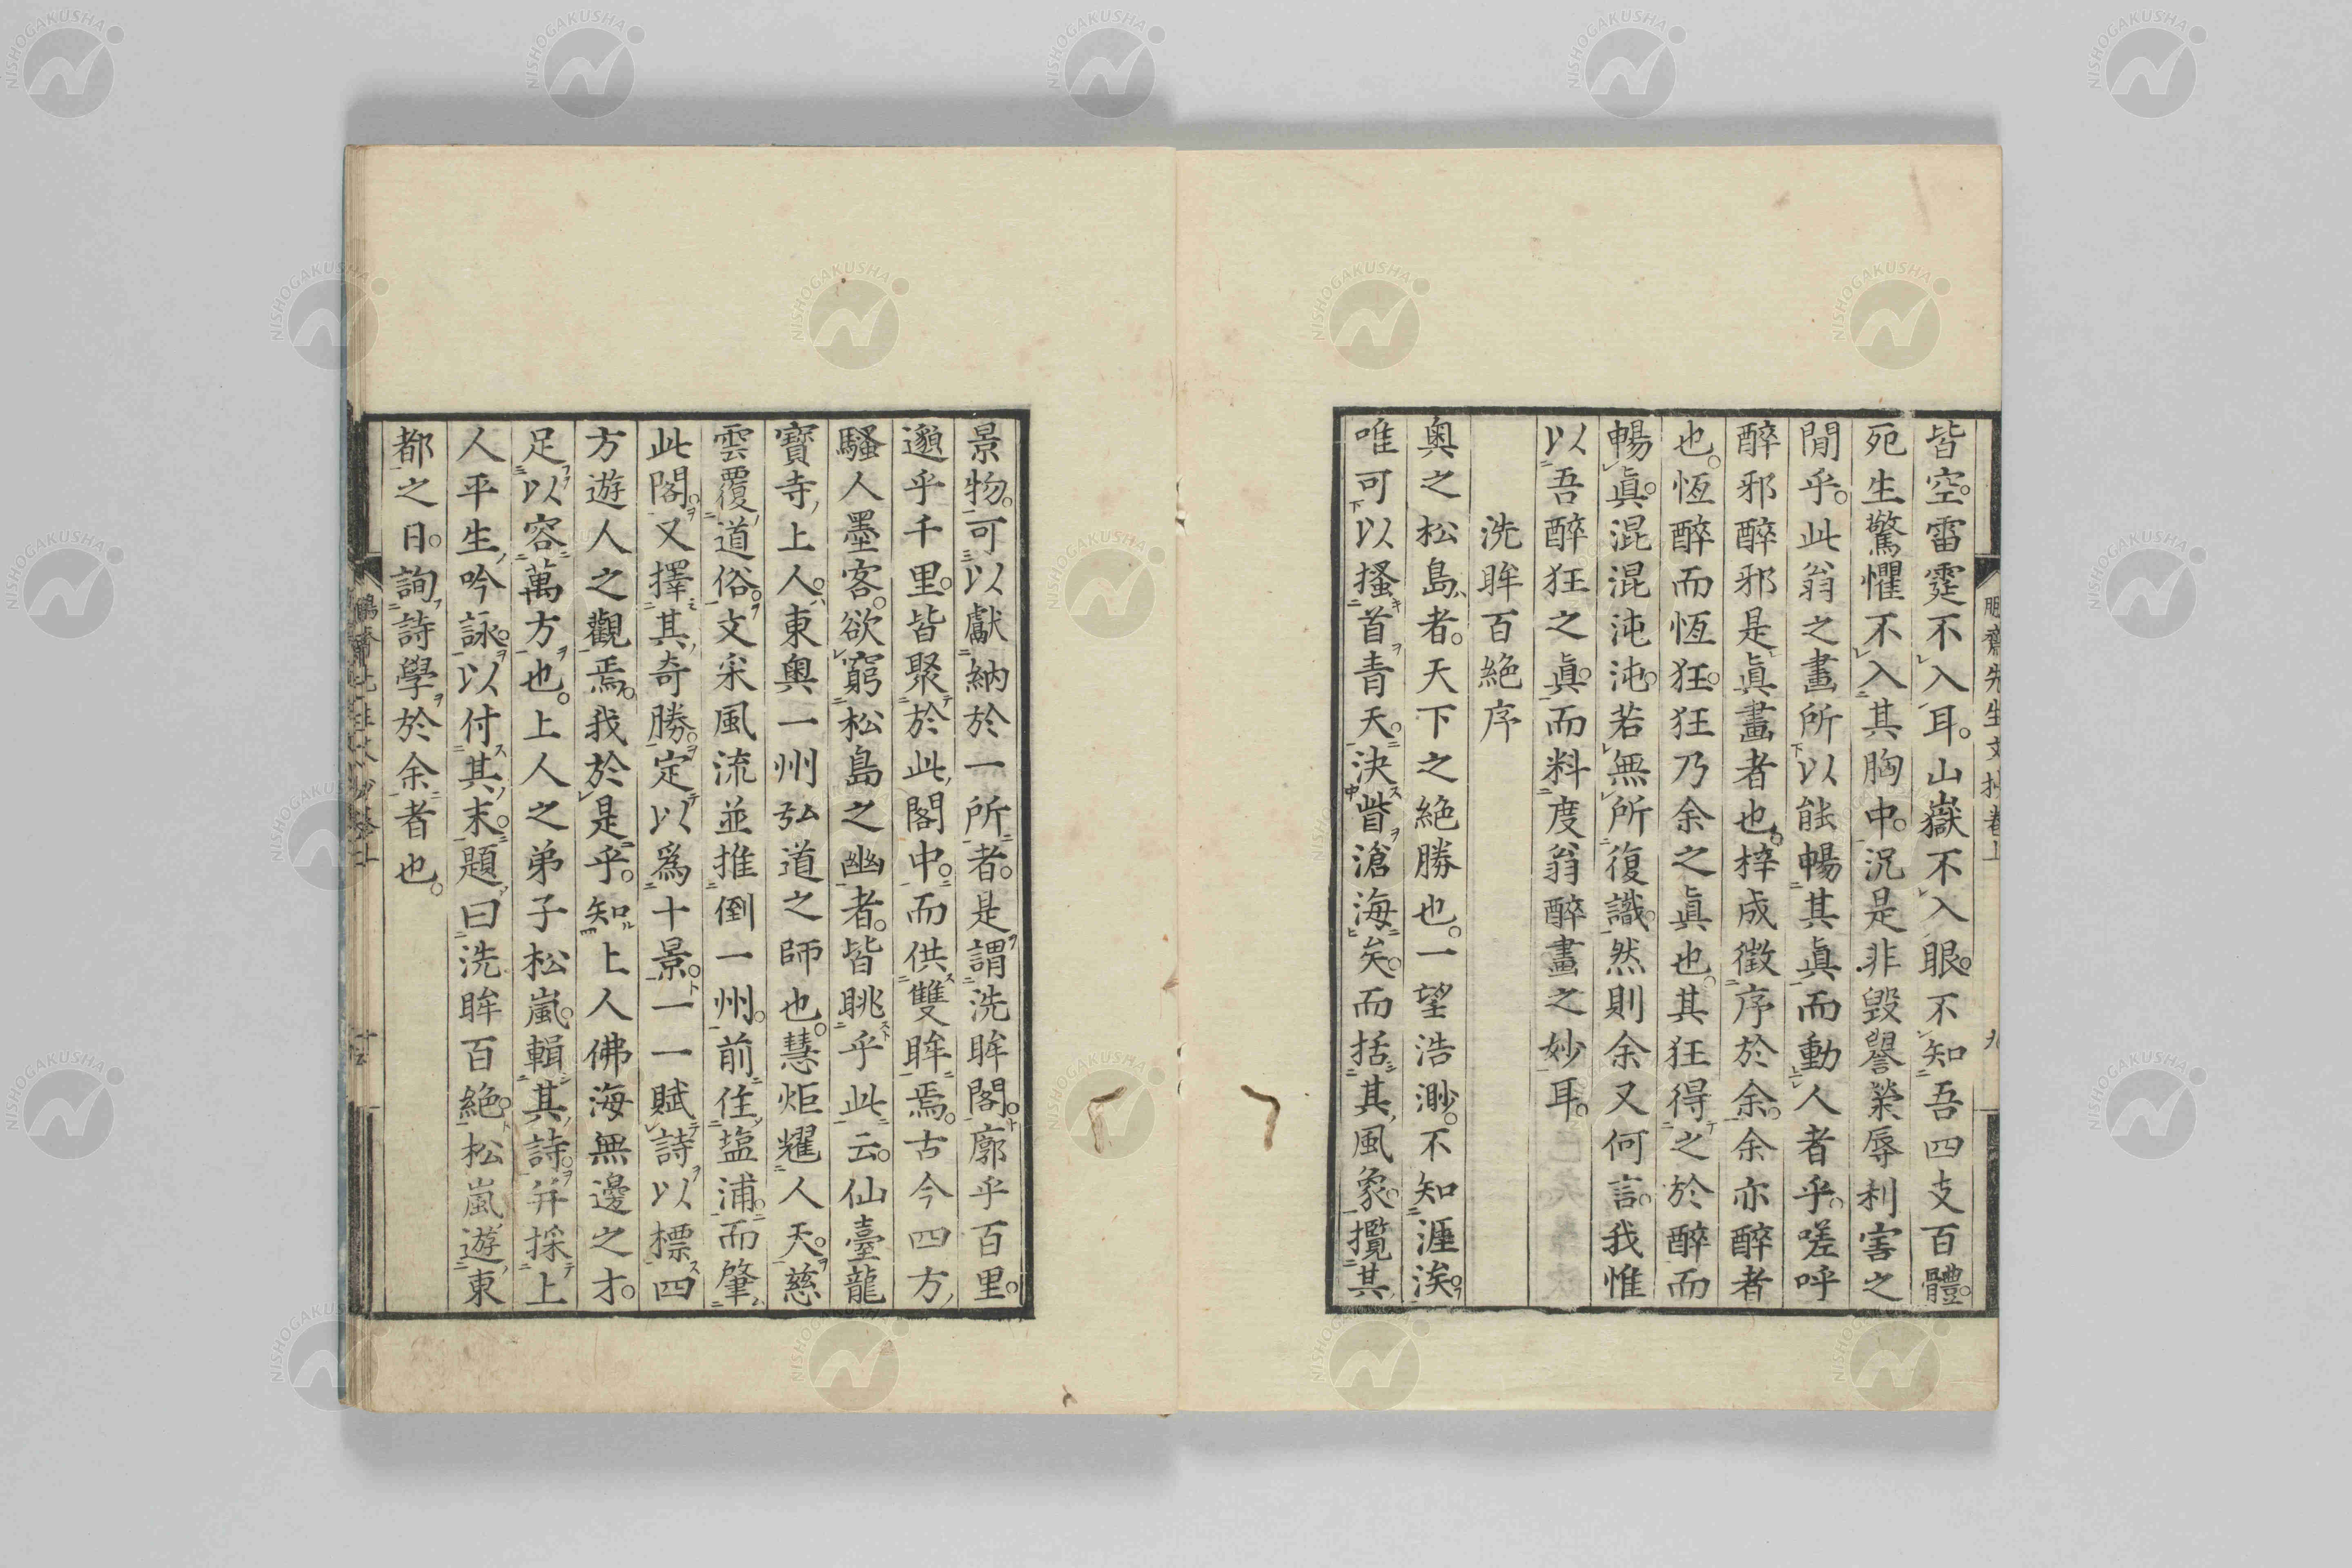 皆空。雷霆不入耳。山嶽不入眼。不知吾四支百體。
死生驚懼不入其胸中。況是非毀譽榮辱利害之
閒乎。此翁之畫所以能暢其眞而動人者乎。嗟呼
醉邪醉邪是眞畫者也。梓成徵序於余。余亦醉者
也。恆醉而恆狂。狂乃余之眞也。其狂得之於醉而
暢眞。混混沌沌。若無所復識。然則余又何言。我惟
以吾醉狂之眞。而料度翁醉畫之妙耳。
洗眸百絶序
奧之松島者。天下之絶勝也。一望浩渺。不知涯涘。
唯可以搔首青天。決眥滄海矣。而括其風象。攬其
景物。可以獻納於一所者。是謂洗眸閣。廓乎百里。
邈乎千里。皆聚於此閣中。而供雙眸焉。古今四方
騷人墨客。欲窮松島之幽者。皆眺乎此云。仙臺龍
寶寺上人。東奧一州弘道之師也。慧炬耀人天。慈
雲覆道俗。文采風流並推倒一州。前住塩浦。而肇
此閣。又擇其奇勝。定以爲十景。一一賦詩以標四
方遊人之觀焉。我於是乎。知上人佛海無邊之才。
足以容萬方也。上人之弟子松嵐。輯其詩。幷採上
人平生吟詠。以付其末。題曰洗眸百絶。松嵐遊東
都之日。詢詩學於余者也。
NISHOGAKUSHA